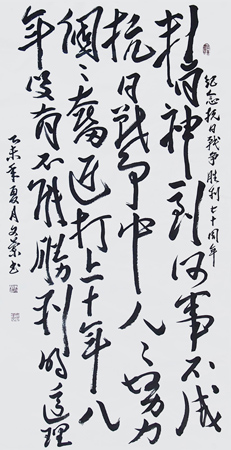 纪念抗日戰争胜利七十周年
精神到何事不成
抗日戰争中人々努力
個々奮打上十年八
年没有不能勝利的道理
乙未年夏月荣书